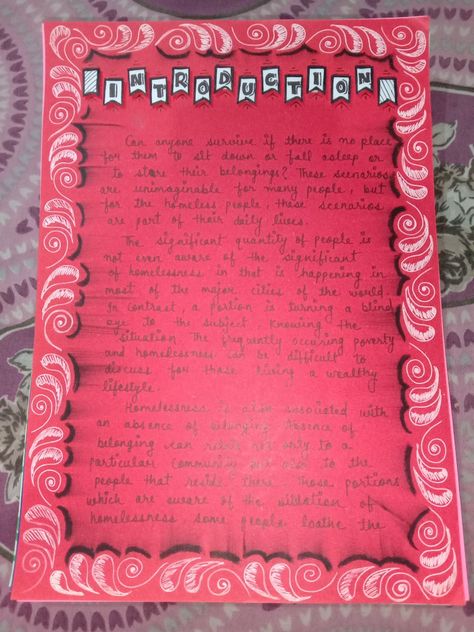 INTRODUCTION
Can anyone survive if there is no place
for them to sit down or fall asleep or
to store their belongings? These scenarios
are unimaginable for many people, but
for the homeless people, these scenarios
are part of their daily lives.
The significant quantity of people is
not even aware of the significant
of homelessness in that is happening in
most of the major cities of the world.
In contrast, a portion is turning a blind
eye to the subject. Knowing the
situation. The frequently occuring poverty
and homelessness can be difficult to
discuss for those living a wealthy
lifestyle.
Homelessness is also associated with
an absence of belonging. Absence of
belonging can relate not only to a
particular community but also to the
people that reside there. Those portions
which are aware of the situation of
homelessness, some people loathe the